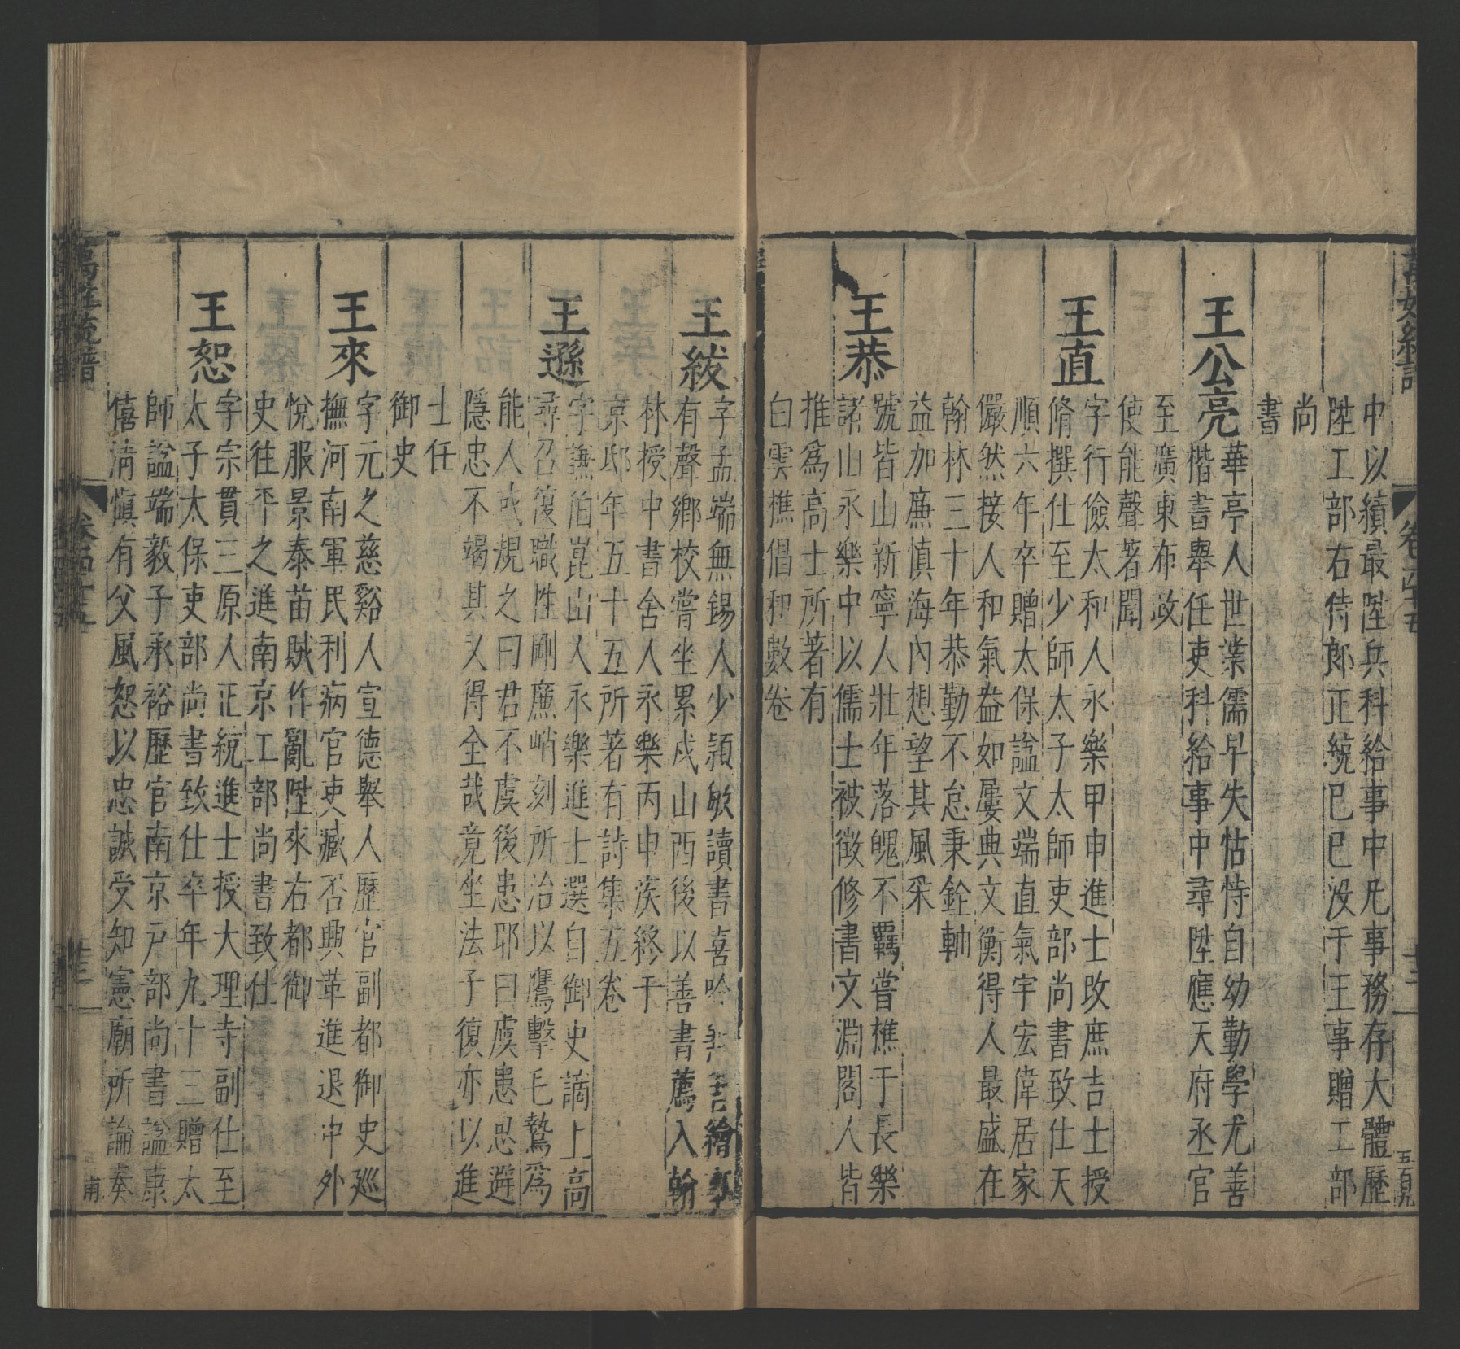 中以績最陞兵科給事中凡事務存大體歷
陞工部右侍郎正統己巳没于王事贈工部
尚
書
王公亮
華亭人世業儒早失怙恃自幼勤學尤善
楷書舉任吏科給事中尋陞應天府丞官
至廣東布政
使能聲著聞
王直
字行儉太和人永樂甲申進士改庶吉士授
脩撰仕至少師太子太師吏部尚書致仕天
順六年卒贈太保謚文端直氣宇宏偉居家
儼然接人和氣益如屢典文衡得人最盛在
翰林三十年恭勤不怠秉銓軸
益加廉慎海內想望其風采
王恭
號皆山新寧人壯年落魄不羈嘗樵于長樂
諸山永樂中以儒士被徵修書文淵閣人皆
推爲高士所著有
白雲樵倡和數卷
王紱
字孟端無錫人少穎敏讀書喜吟善繪事
有聲鄉校嘗坐累戍山西後以善書薦入翰
林授中書舍人永樂丙申疾終于
京邸年五十五所著有詩集五卷
王遜
字謙伯崑山人永樂進士選自御史謫上高
尋召復職性剛廉峭刻所治以鷹擊毛鷙爲
能人或規之曰君不虞後患耶曰虞患思避
隱忠不竭其义得全哉竟坐法子復亦以進
士任
御史
王來
字元之慈谿人宣德舉人歷官副都御史巡
撫河南軍民利病官吏臧否興革進退中外
悅服景泰苗賊作亂陞來右都御
史往平之進南京工部尚書致仕
王恕
字宗貫三原人正統進士授大理寺副仕至
太子太保吏部尚書致仕卒年九十三贈太
師謚端毅子承裕歷官南京戶部尚書謚康
僖清慎有父風恕以忠誠受知憲廟所論奏
萬姓統譜